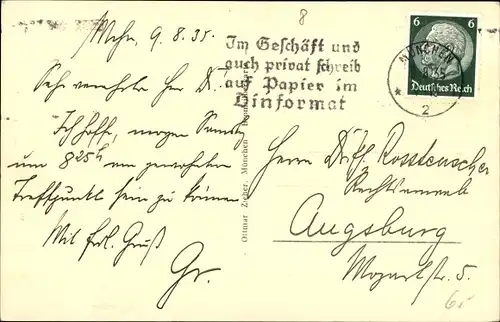 8
Mchn, 9.8.35.
Im Geschäft und
auch privat schreib
auf Papier im
Dinformat
MÜNCHEN
2
6 6
Deutsches Reich
Sehr verehrter Herr Dr.
Ich hoffe, morgen
um 8 25 h am gewohnten
Treffpunkt sein zu können
Mit frdl. Gruß
Gr.
Ottmar Zieher, München
Herrn
Rechtsanwalt
Augsburg
Mozartstr. 5.